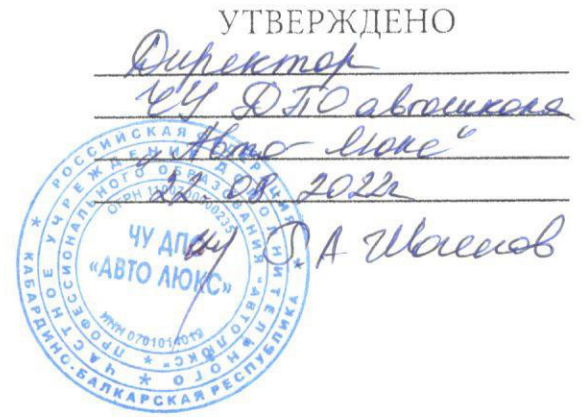 УТВЕРЖДЕНО
Директор
ЧУ ДПО автошкола
„Авто Люкс"
22 08 2022г
А
РОССИЙСКАЯ ФЕДЕРАЦИЯ
КАБАРДИНО-БАЛКАРСКАЯ РЕСПУБЛИКА
ЧАСТНОЕ УЧРЕЖДЕНИЕ ДОПОЛНИТЕЛЬНОГО
ПРОФЕССИОНАЛЬНОГО ОБРАЗОВАНИЯ "АВТОЛЮКС"
ОГРН
ЧУ ДПО
«АВТО ЛЮКС»
ИНН 0701014019